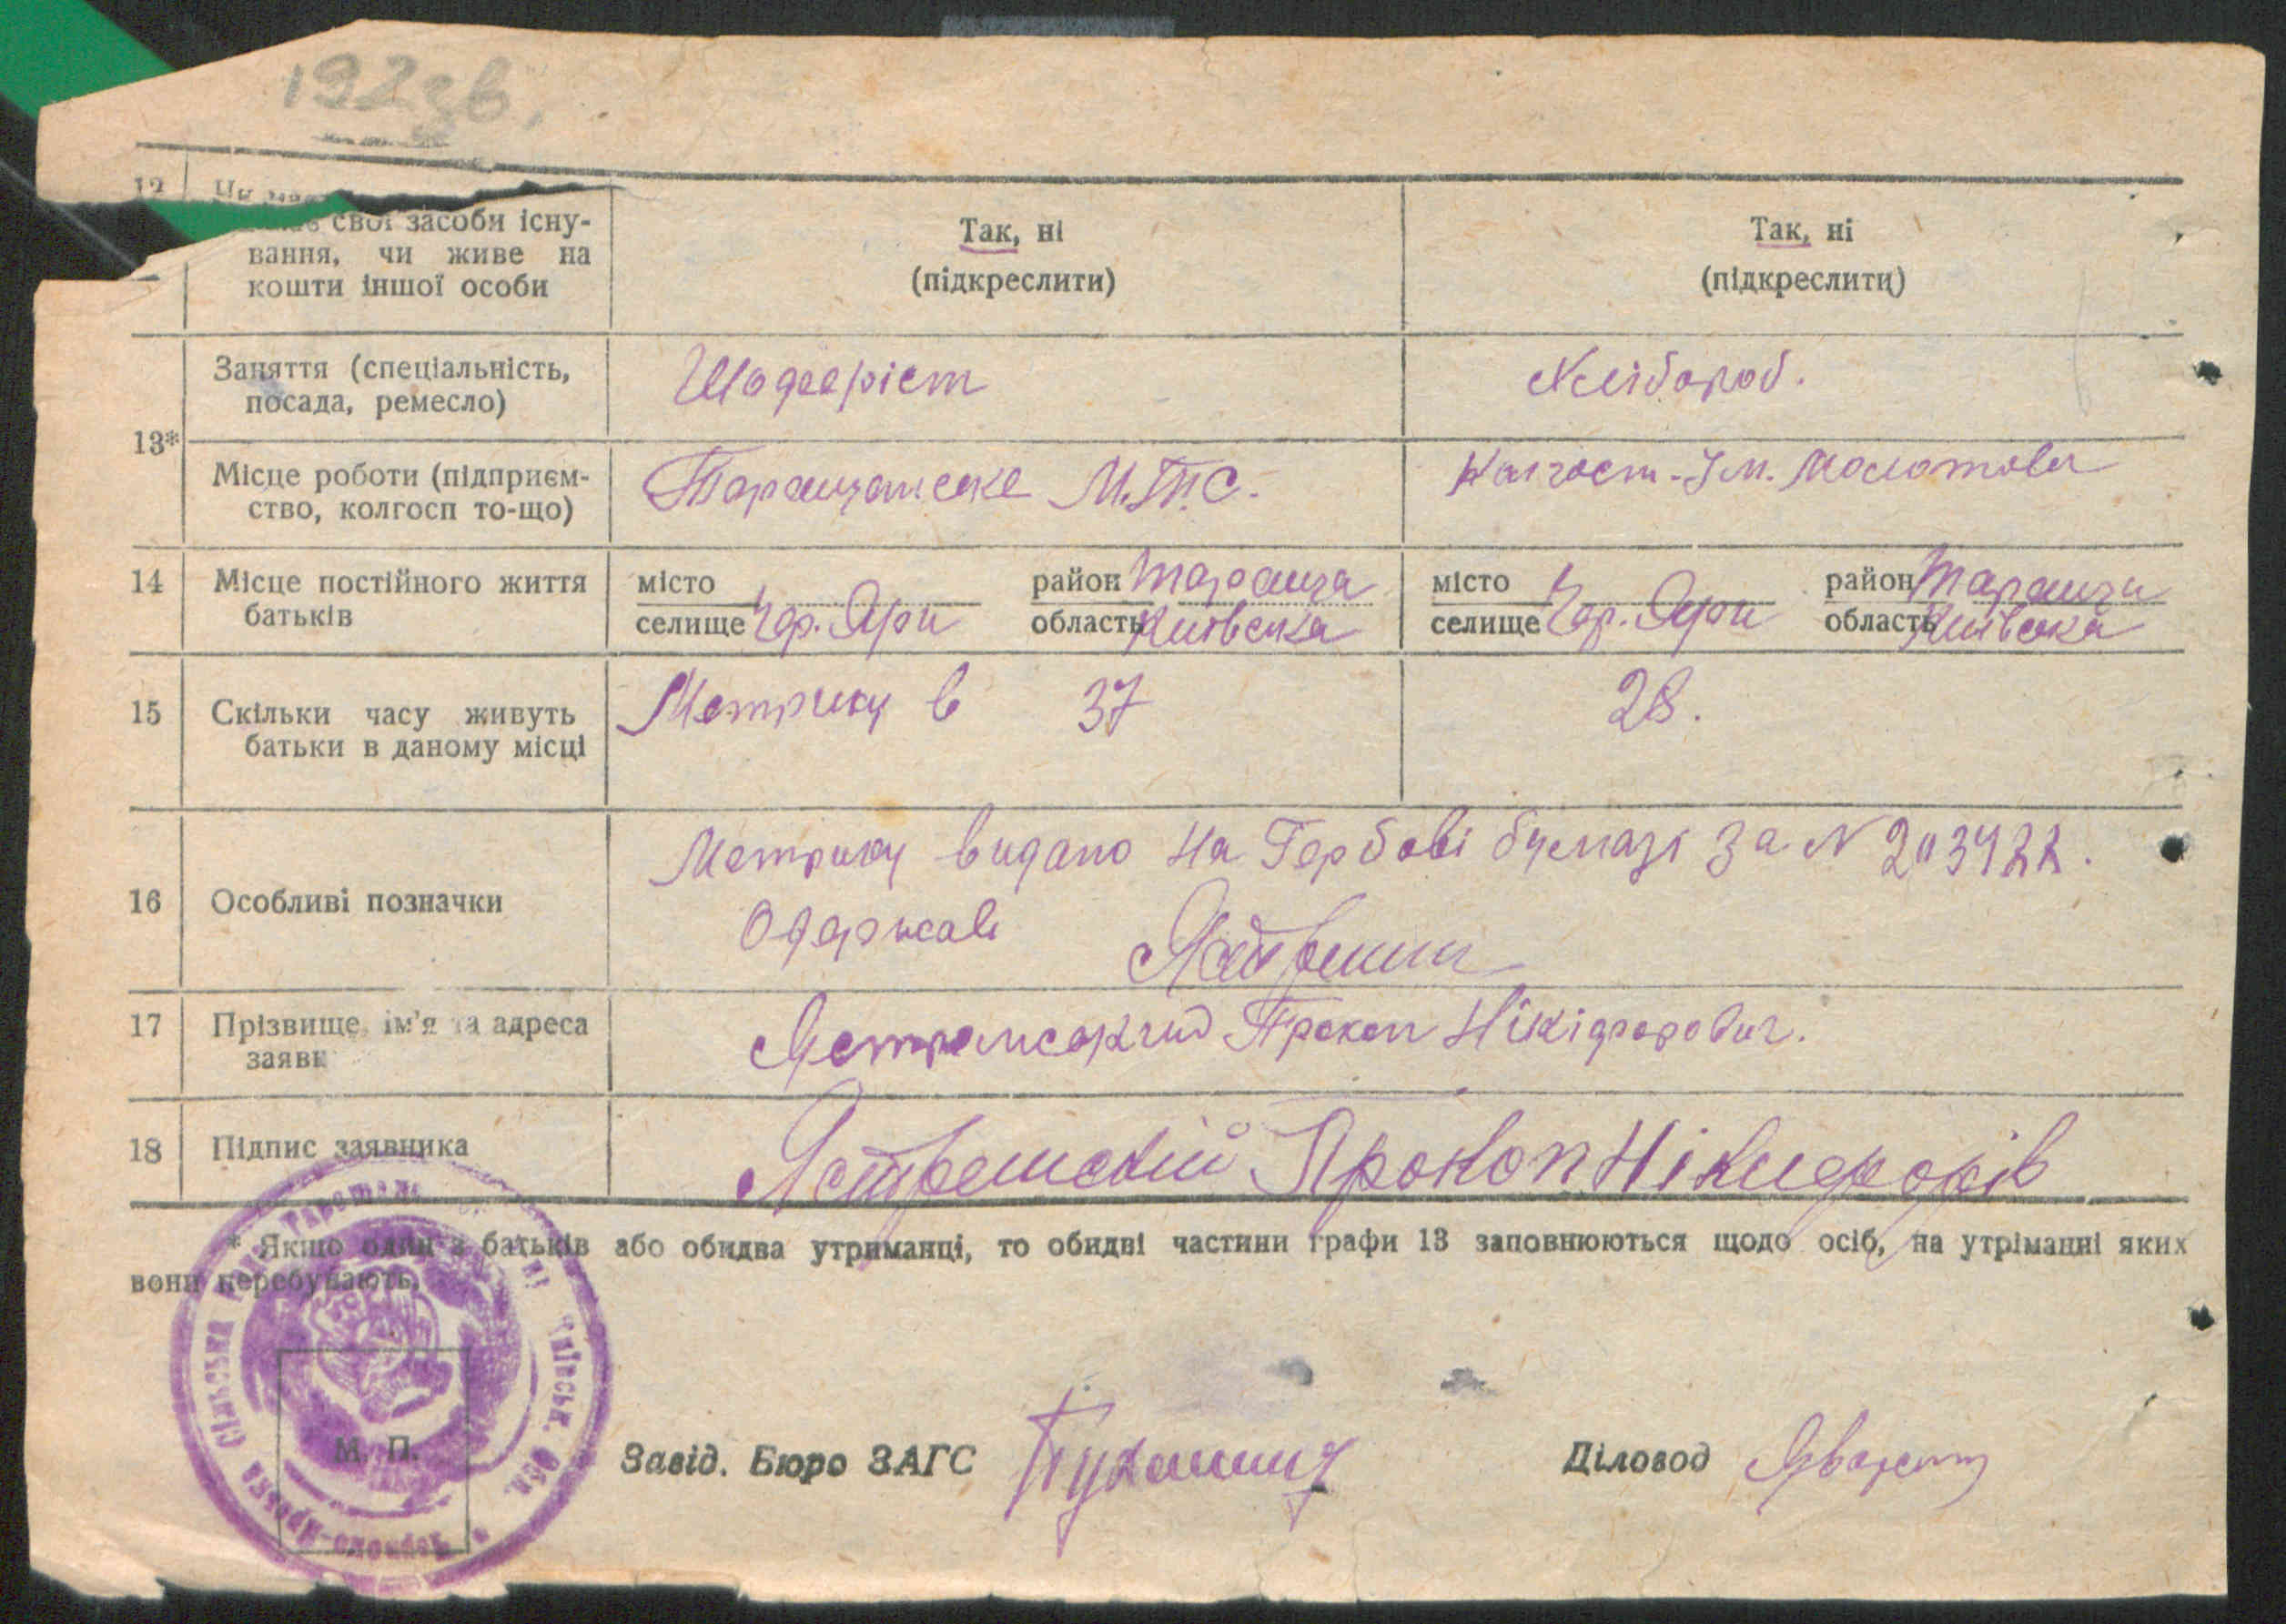 192зв.
12
свої засоби існу-
вання, чи живе на
кошти іншої особи
Так, ні
(підкреслити)
Так, ні
(підкреслити)
13*
Заняття (спеціальність,
посада, ремесло)
Шоферіст
Хлібороб.
Місце роботи (підприєм-
ство, колгосп то-що)
Таращанське М.Т.С.
Колгосп-Ім. Молотова
14
Місце постійного життя
батьків
місто
селище Чер. Яри
район Тараща
область Київська
місто
селище Чер. Яри
район Таращи
область Київска
15
Скільки часу живуть
батьки в даному місці
Метрику в 37
28.
16
Особливі позначки
Метрику видано на Гербові бумазі За N
Одержав
17
Прізвище, ім'я та адреса
заявн
Прокоп Нікіфорович.
18
Підпис заявника
Прокоп Нікифорів
* Якщо один з батьків або обидва утриманці, то обидві частини графи 13 заповнюються щодо осіб, на утріманні яких
вони перебувають.
М. П.
Завід. Бюро ЗАГС
Діловод